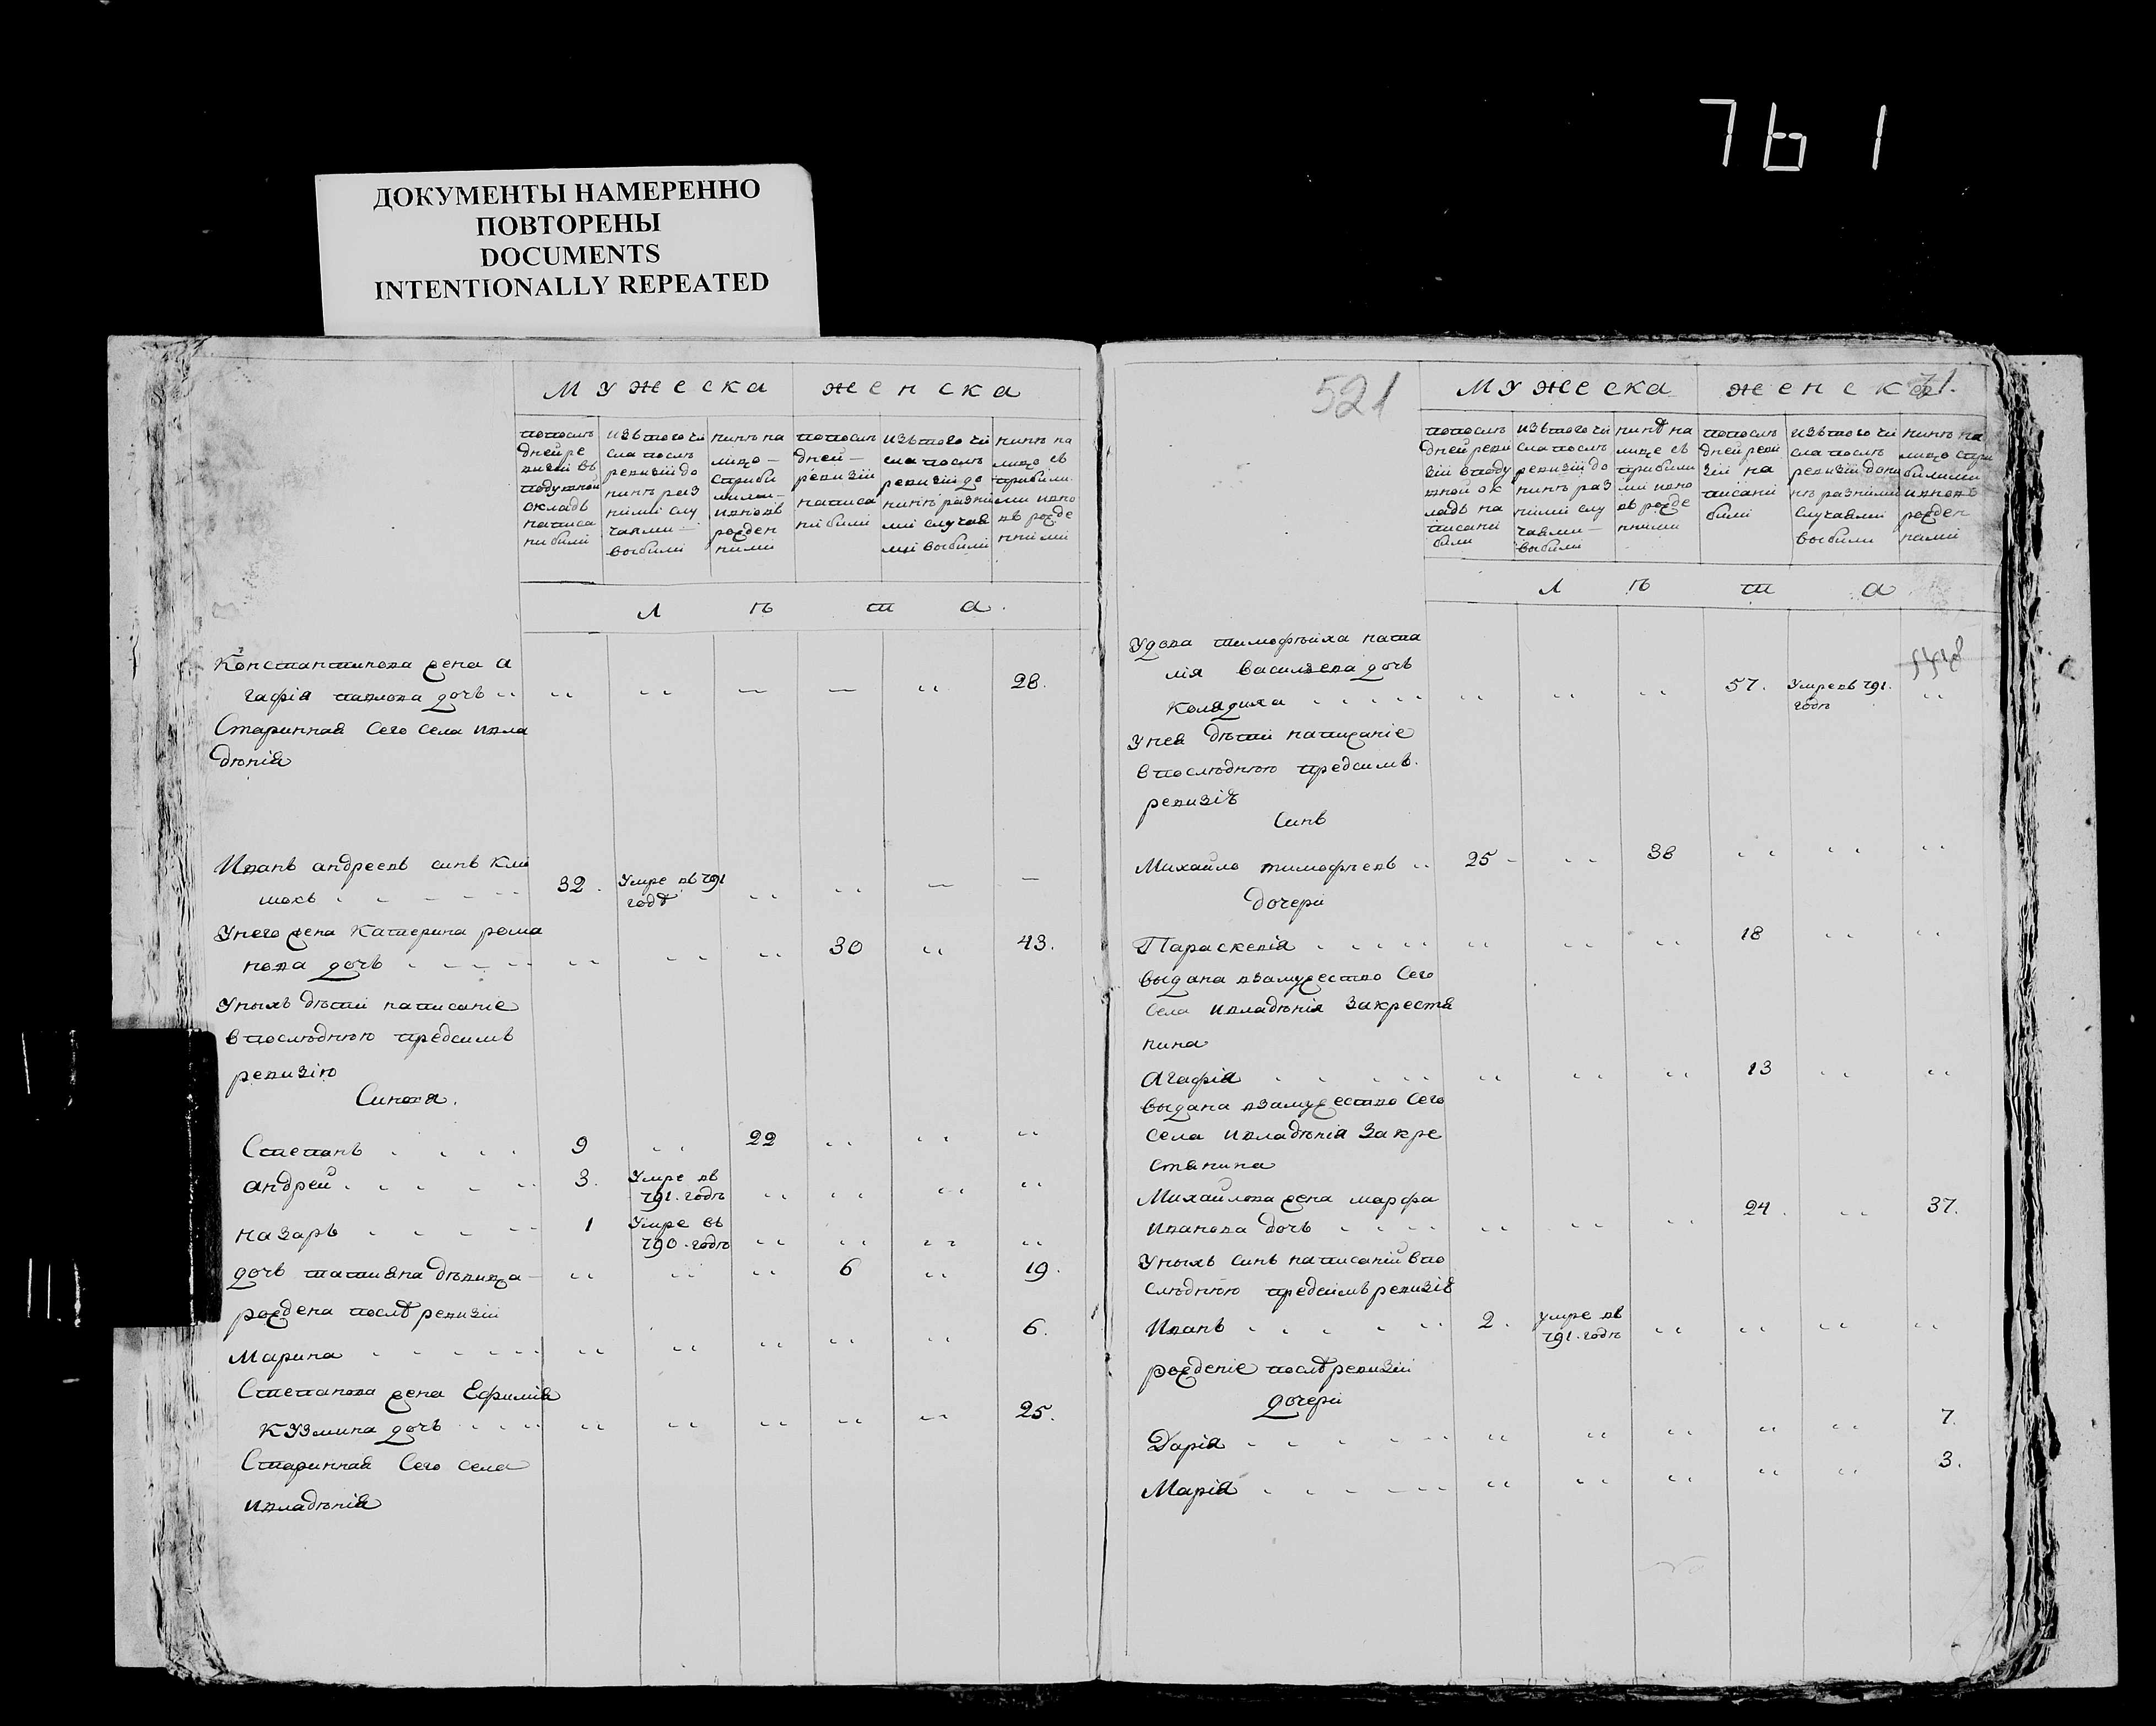 761
ДОКУМЕНТЫ НАМЕРЕННО
ПОВТОРЕНЫ
DOCUMENTS
INTENTIONALLY REPEATED
Мужеска женска
попослѣ
дней ре
визій въ
подушной
окладъ
написа
ни били
изътого чи
сла послѣ
ревизій до
нинѣ раз
ними слу
чаями
выбили
нинѣ на
лицо
сприби
лими
ивновъ
рожден
ними
попослѣ
дней
ревизій
написа
ни били
изътого чи
сла послѣ
ревизій до
нинѣ разни
ми случая
ми выбили
нинѣ на
лицо съ
прибили
ми ивно
въ рожде
нними
Л ѣ т а.
Константинова жена а
гафія павлова дочь 28.
Старинная Сего Села ивла
дѣнія
Иванъ андреевъ синъ Кли
мохъ 32. Умре въ 791
годѣ
Унего жена Катерина рома
нова дочь 30 43.
Унихъ дѣти написаніе
впослѣднюю предсимъ
ревизію
Синовя.
Степанъ 9 22
андрей 3. Умре въ
791. годѣ
назаръ 1 Умре въ
790. годѣ
дочь татияна дѣвица 6 19.
рождена послѣ ревизіи
Марина 6.
Степанова жена Ефимія
Кузмина дочь 25.
Старинная Сего села
ивладѣнія
521
71.
Мужеска женска
попослѣ
дней реви
зіи вподу
шной ок
ладъ на
писани
били
изътого чи
сла послѣ
ревизій до
нинѣ раз
ними слу
чаями
выбили
нинѣ на
лице съ
прибили
ми ивно
въ рожде
нними
попослѣ
дней реви
зіи на
писани
били
изътого чи
сла послѣ
ревизій дони
нѣ разними
случаями
выбили
нинѣ на
лицо спри
билими
ивновъ
рожден
нами
Л ѣ т а
Удова тимофѣиха ната
лія василева дочь
Колядиха 57. Умре въ 791.
годѣ
Унея дѣти написаніе
впослѣднюю предсимъ.
ревизіѣ
Синъ
Михайло тимофѣевъ 25 38
дочери
Параскевія 18
выдана взамужество Сего
Села ивладѣнія Закрестя
нина
Агафія 13
выдана взамужество Сего
Села ивладѣнія Закре
стянина
Михайлова жена марфа
Иванова дочь 24. 37.
Унихъ синъ написаній впо
слѣднюю предсимъ ревизіѣ
Иванъ 2. умре въ
791. годѣ
рожденіе послѣ ревизіи
дочери
Дарія 7.
Марія 3.